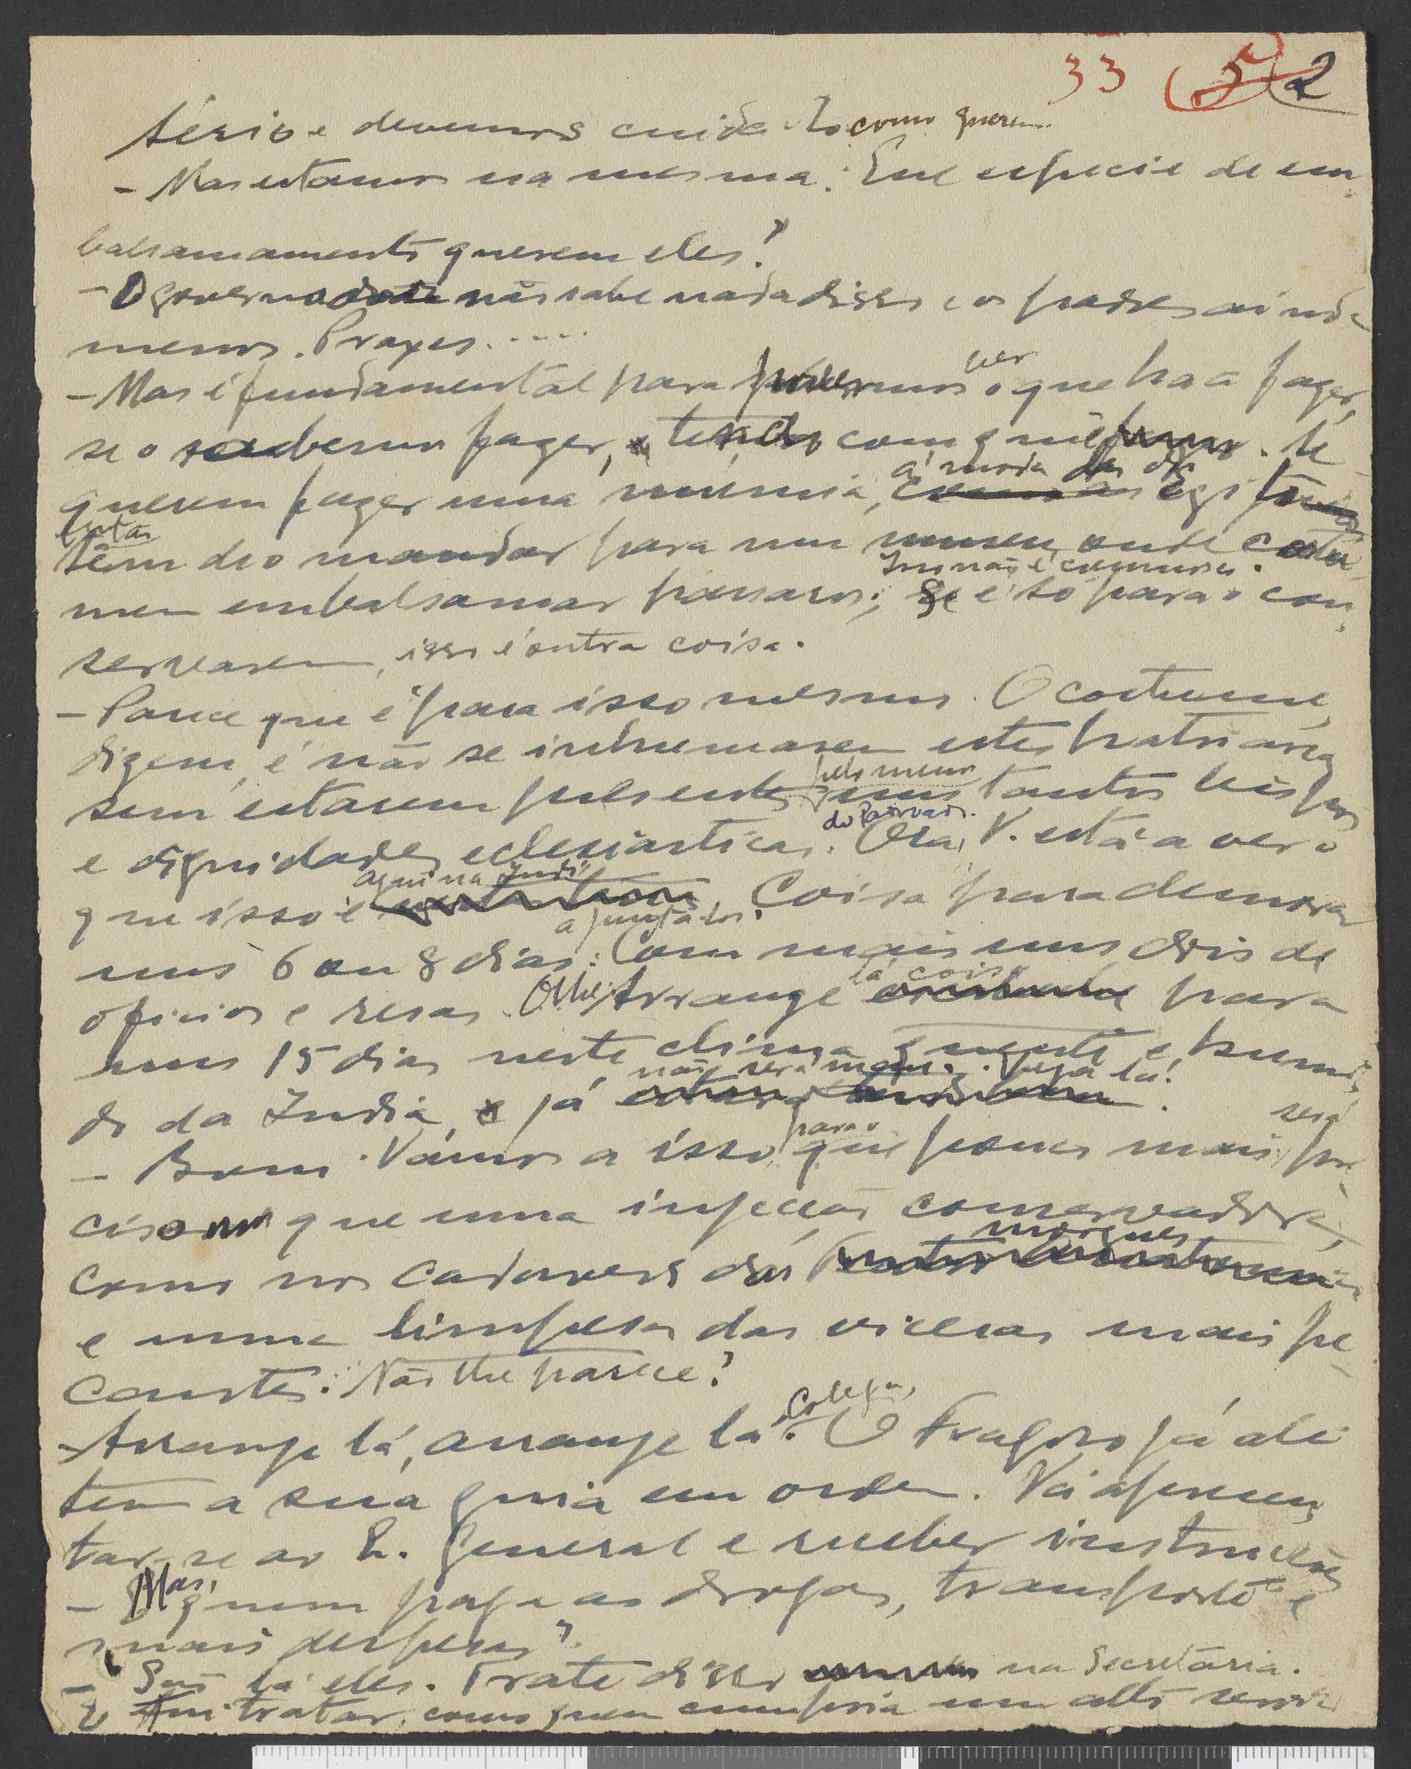 33 5 2
tério e devemos cuida-lo como querem.
- Mas estamos na mesma: Que especie de em-
balsamamento querem eles?
- O governo não sabe nada disso e os padres ainda
menos. Praxes.....
- Mas é fundamental para ver o que ha a fazer,
se o sabemos fazer, e tendo com quê. Se
querem fazer uma múmia, á moda dos Egi
então têm de o mandar para um museu onde costu-
Isso não é comnosco.
mem embalsamar passaros; Se é só para o con-
servarem, isso é outra coisa.
- Parece que é para isso mesmo. O costume,
dizem, é não se inhumarem estes patriarcas
sem estarem presentes pelo menos uns tantos bispos
e dignidades eclesiasticas do Padroado. Ora, V. está a ver o
que isso é aqui na India. Coisa para demorar
uns 6 ou 8 dias a juntá-los. Com mais uns dois de
oficios e resas. Olhe, Arrange lá coisa para
uns 15 dias neste clima quente e humi-
do da India, e já não será mau. Veja lá!
- Bom. Vamos a isso, para o que pouco mais será pre-
ciso que uma injecção conservadora,
como nos cadaveres das morgues
e uma limpesa das viceras mais pe-
cantes. Não lhe parece?
- Arranje lá, arranje lá, Colega. O Fragoso já ali
tem a sua guia em ordem. Vá apresen-
tar-se ao Q. General e receber instrucções
- Mas, quem paga as drogas, transporte e
mais despesas?
- São lá eles. Trate disso na Secretaria.
E fui tratar, como quem cumpria um alto servi